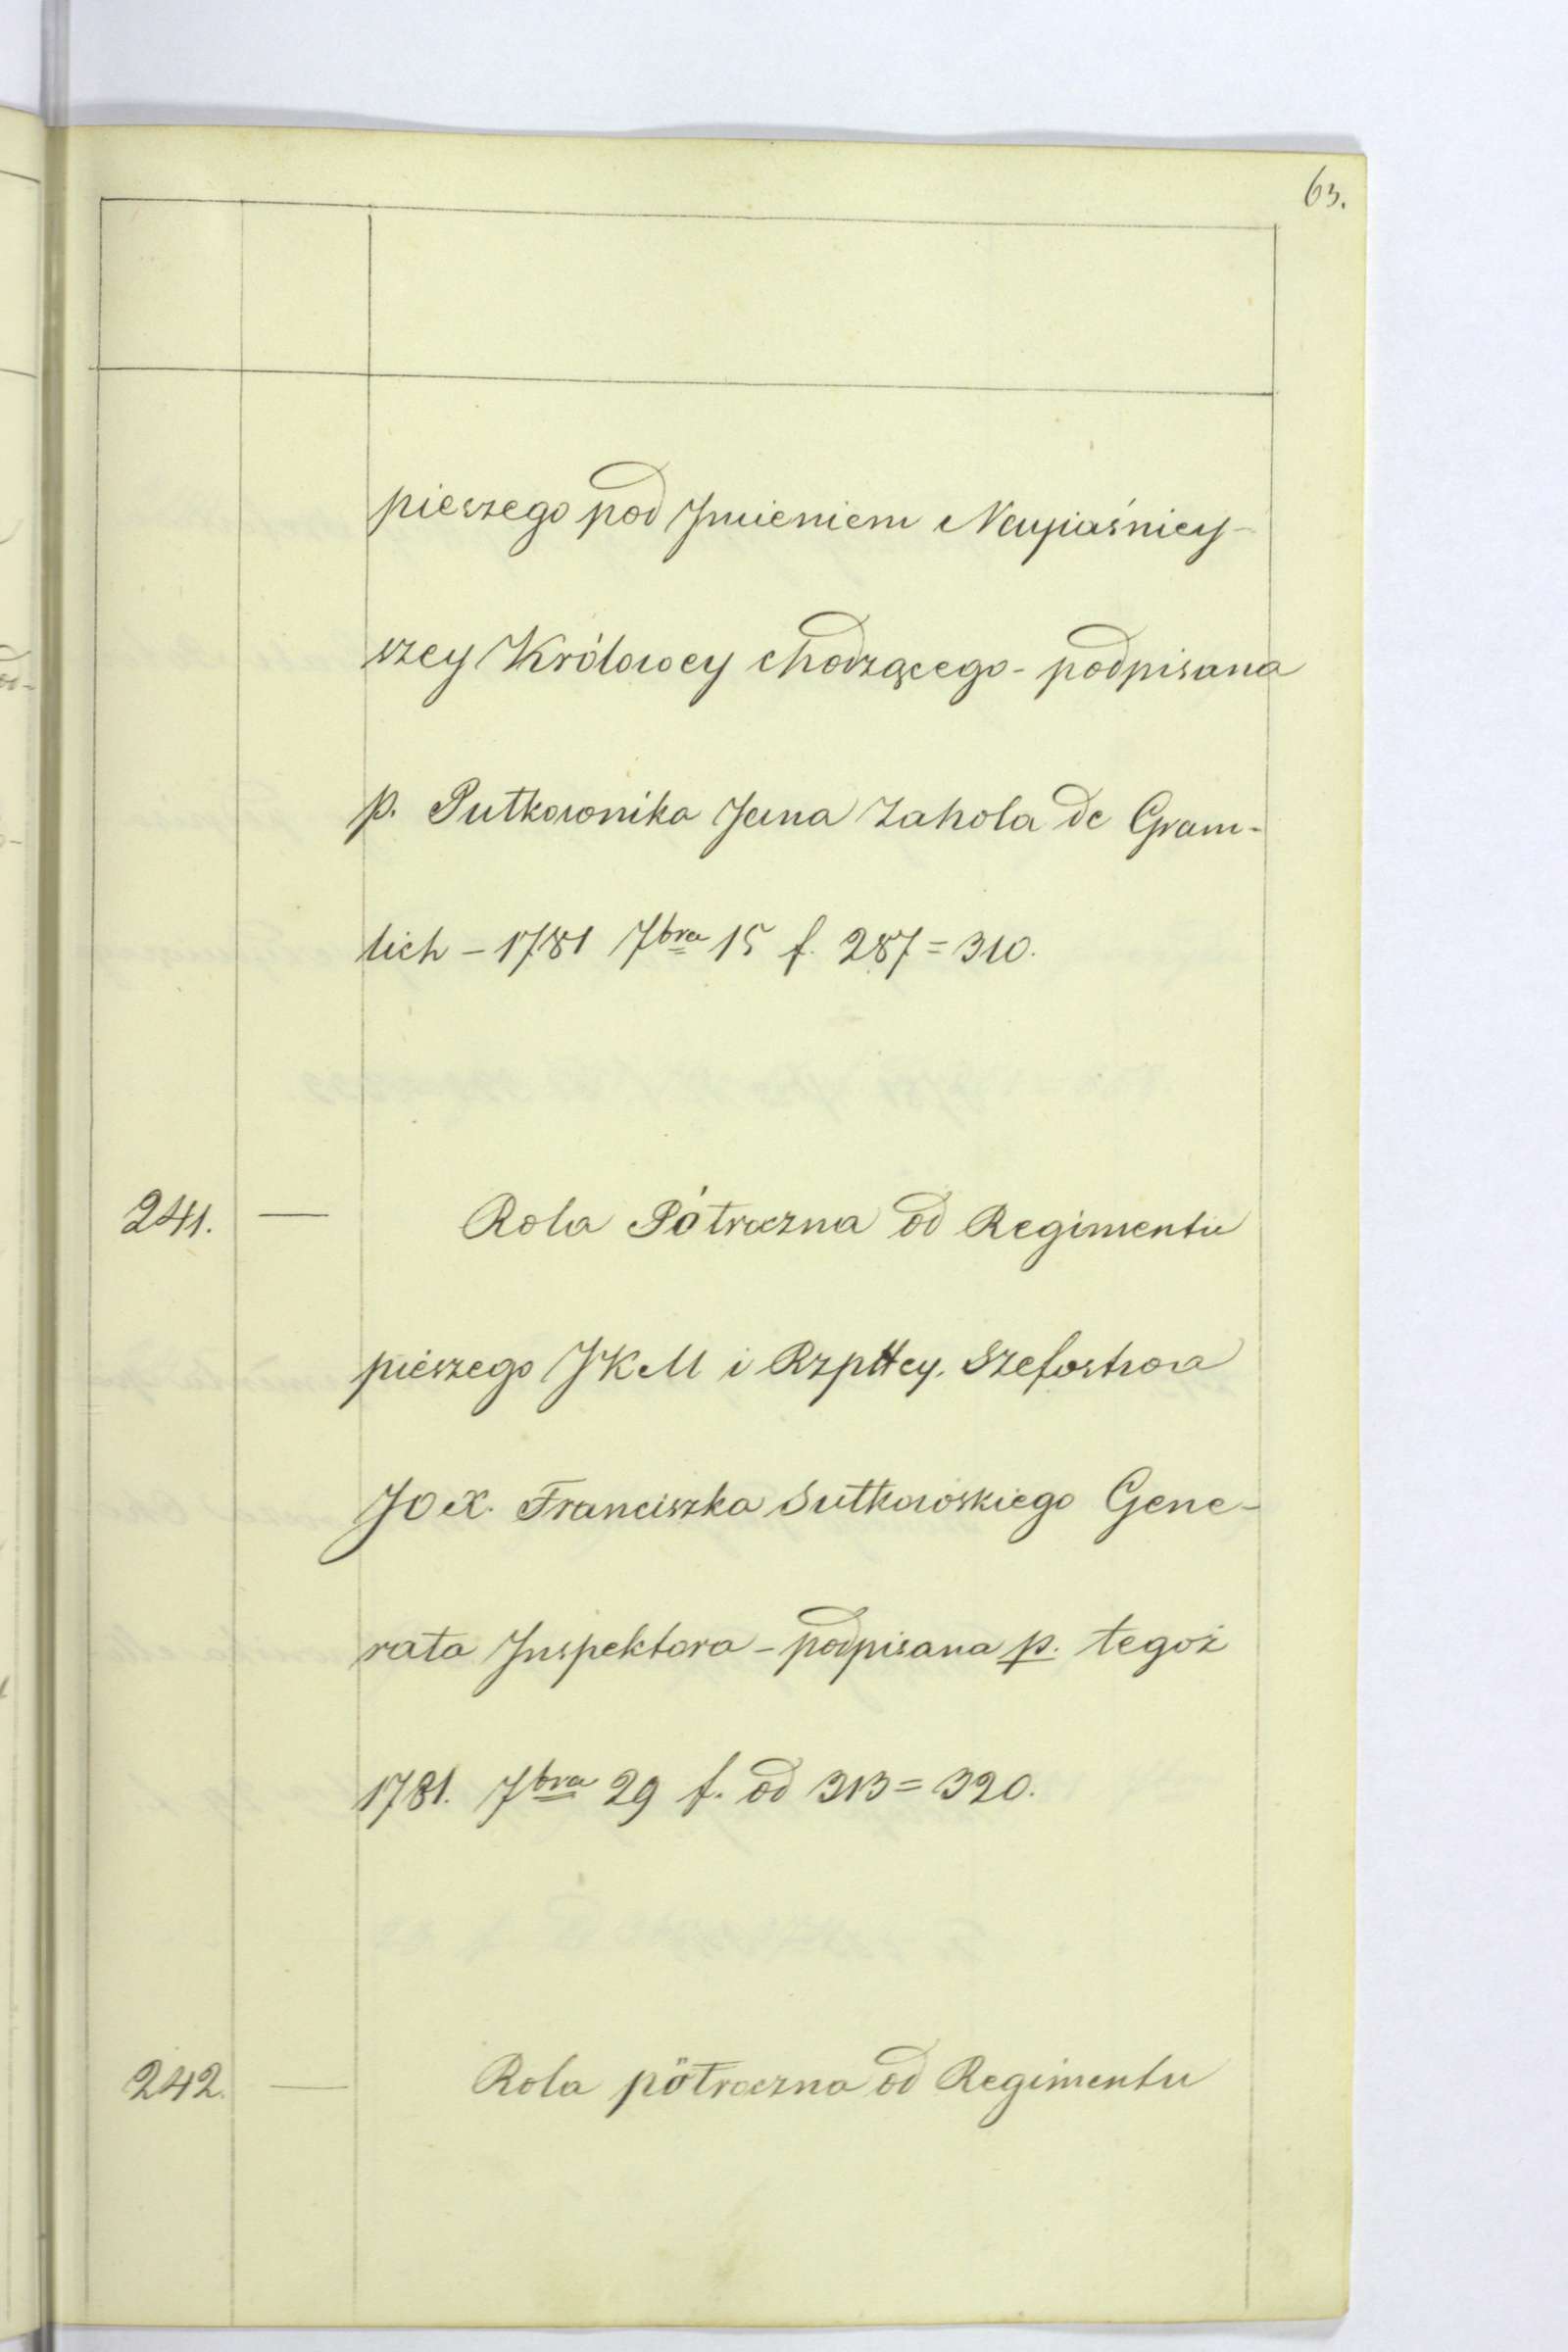 63.
pieszego pod Jmieniem Nayiaśniey-
szey Królowey chodzącego - podpisana
p. Pułkownika Jana Zahola de Gram-
lich - 1781 7bra 15 f. 287 = 310.
241. — Rola Półroczna od Regimentu
pieszego JKM i Rzpttey. Szefostwa
JOX. Franciszka Sułkowskiego Gene-
rała Inspektora - podpisana p. tegoż
1781. 7bra 29 f. od 313 = 320.
242. — Rola półroczna od Regimentu